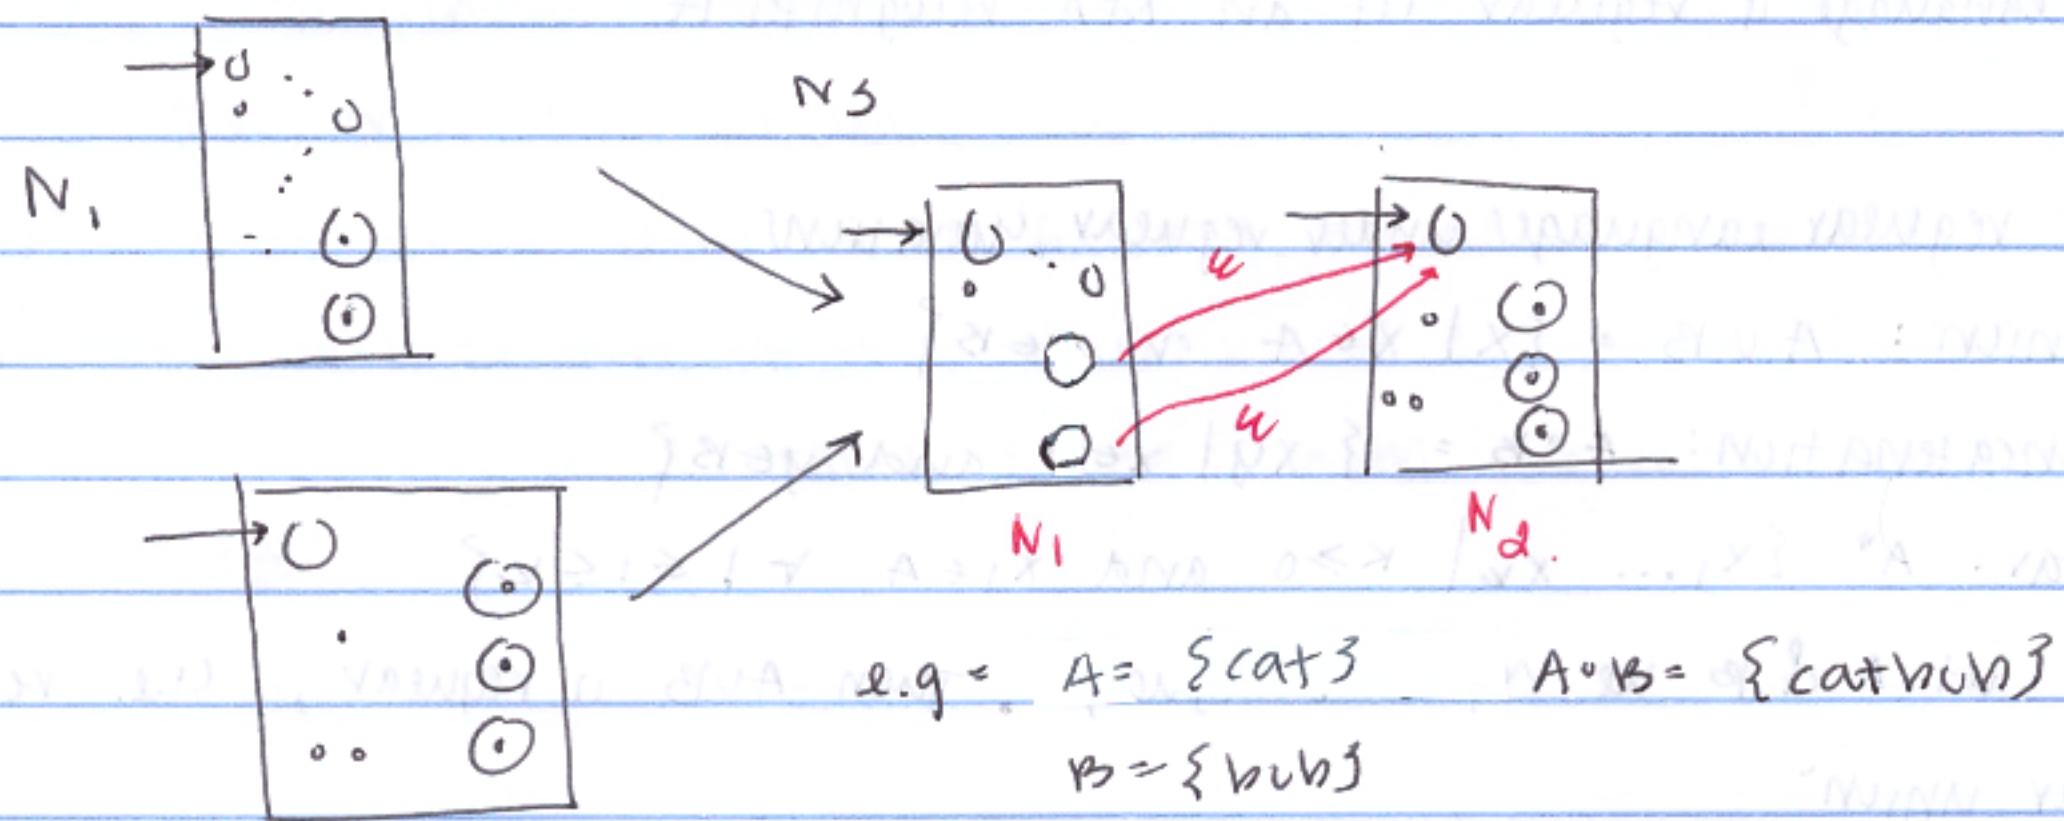 N3
N1
ε
ε
N1 N2.
e.g = A = {cat} A∘B = {catbub}
B = {bub}